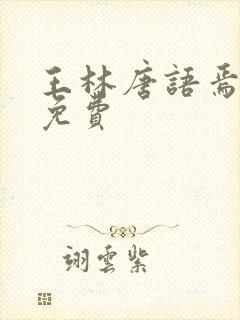 王林唐語焉
免費
翊雲紫